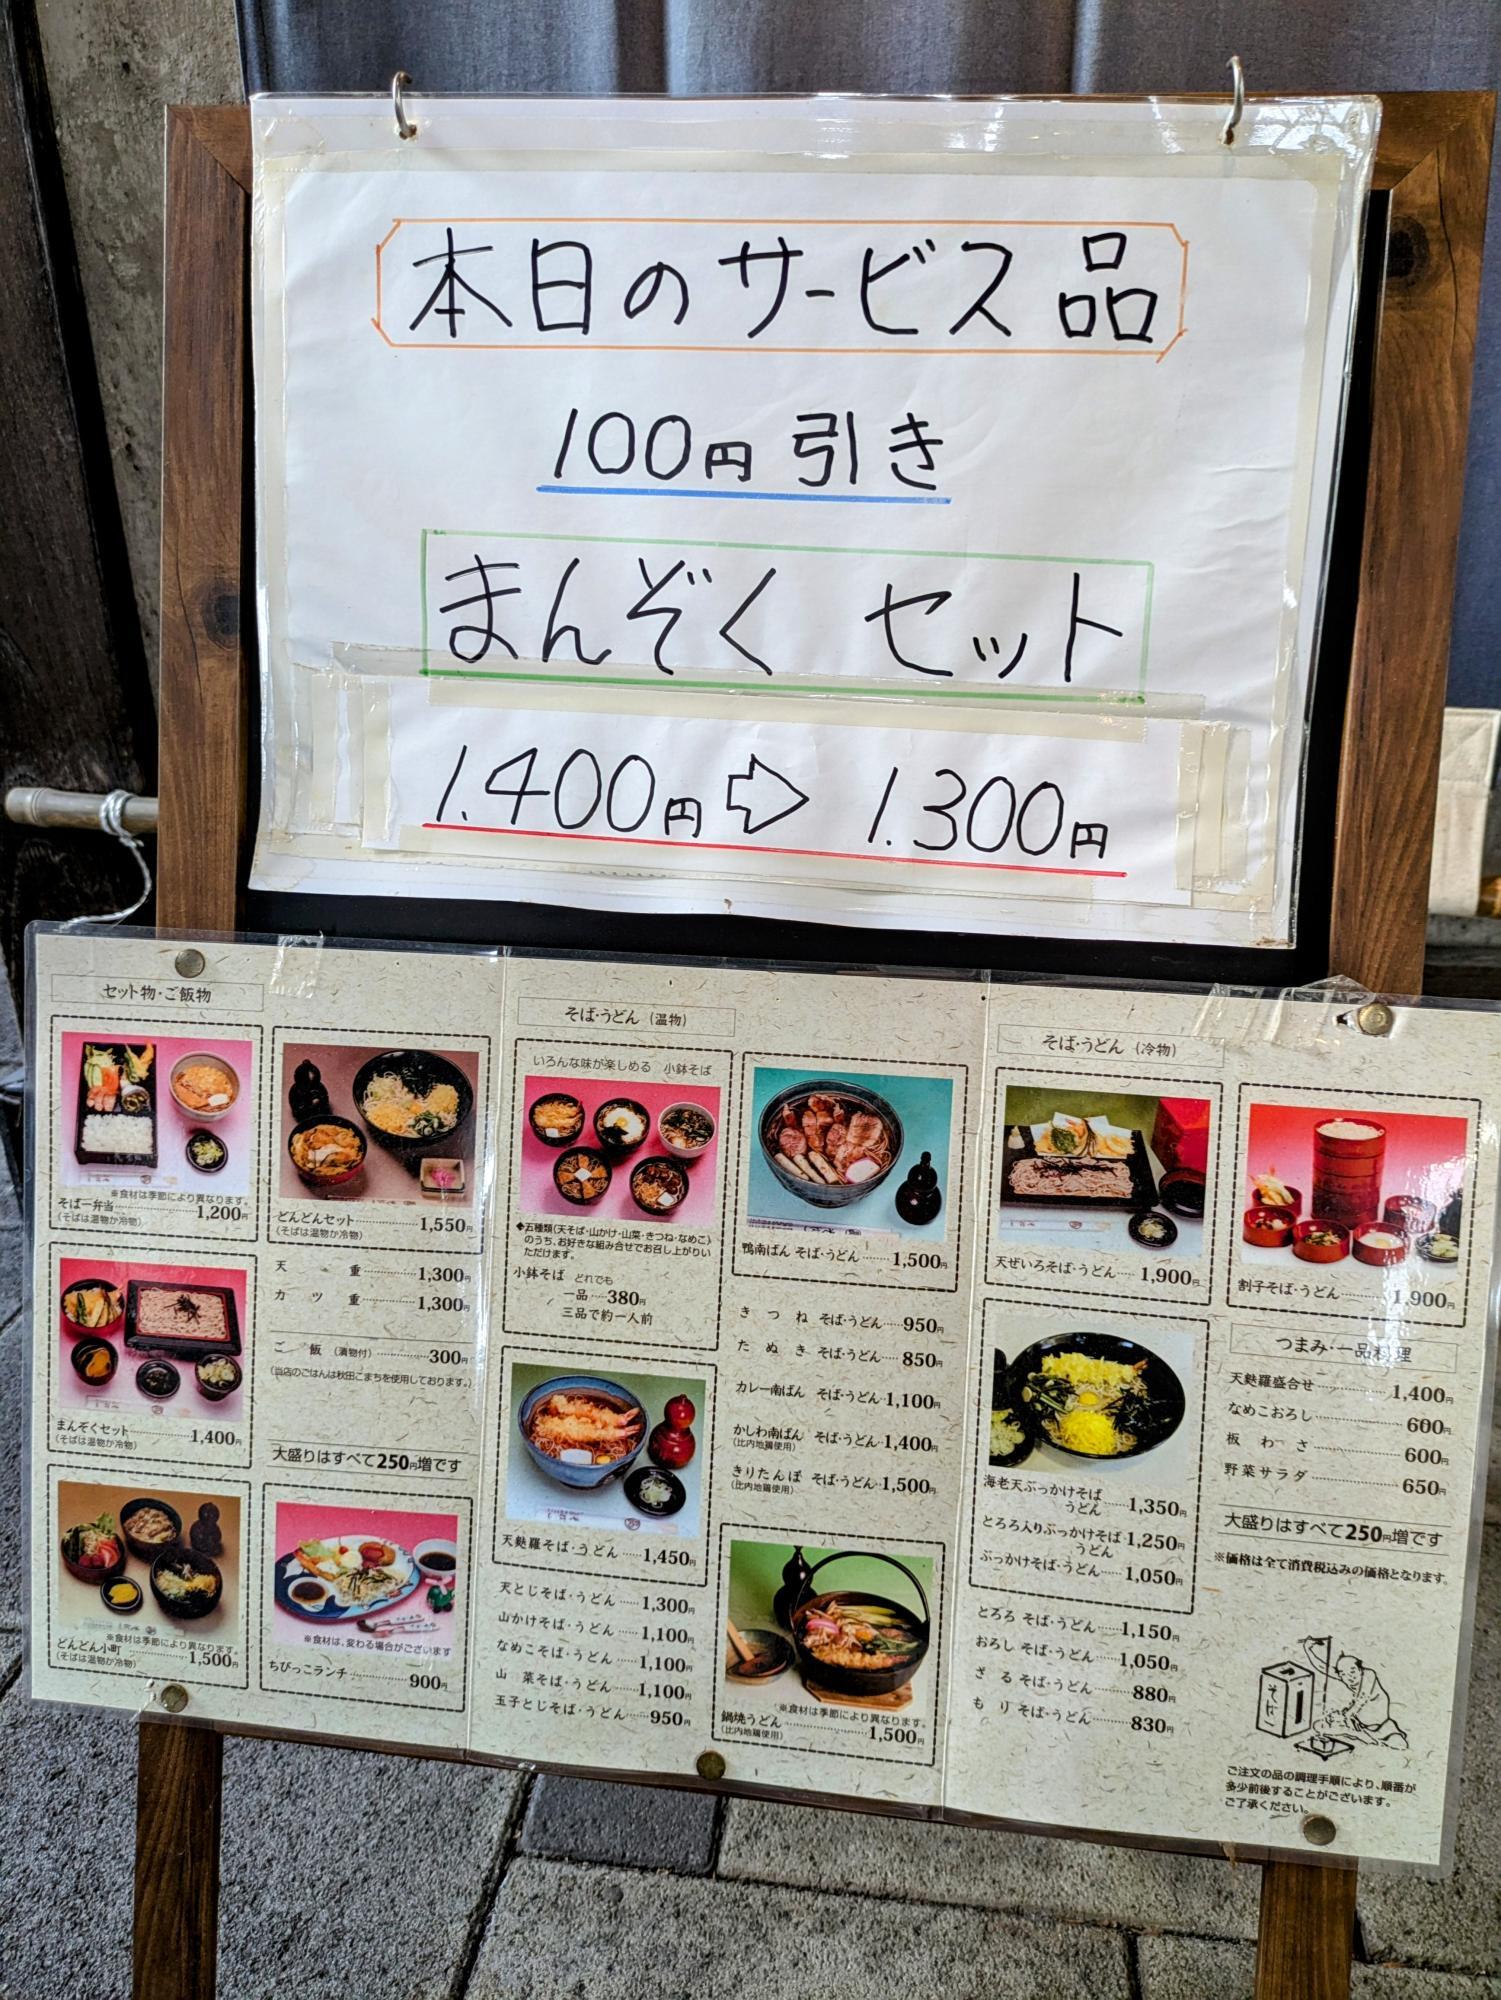 本日のサービス品
100円引き
まんぞく セット
1.400円⇨1.300円
セット物・ご飯物
※食材は季節により異なります。
そば一弁当 1,200円
(そばは温物か冷物)
どんどんセット 1,550円
(そばは温物か冷物)
まんぞくセット 1,400円
(そばは温物か冷物)
天重 1,300円
カツ重 1,300円
ご飯(漬物付) 300円
(当店のごはんは秋田こまちを使用しております。)
大盛りはすべて250円増です
※食材は季節により異なります。
どんどん小町 1,500円
(そばは温物か冷物)
※食材は、変わる場合がございます
ちびっこランチ 900円
そば・うどん(温物)
いろんな味が楽しめる 小鉢そば
◆五種類(天そば・山かけ・山菜・きつね・なめこ)
のうち、お好きな組み合せでお召し上がりい
ただけます。
小鉢そば どれでも
一品 380円
三品で約一人前
天麩羅そば・うどん 1,450円
天とじそば・うどん 1,300円
山かけそば・うどん 1,100円
なめこそば・うどん 1,100円
山菜そば・うどん 1,100円
玉子とじそば・うどん 950円
鴨南ばん そば・うどん 1,500円
きつね そば・うどん 950円
たぬき そば・うどん 850円
カレー南ばん そば・うどん 1,100円
かしわ南ばん そば・うどん 1,400円
(比内地鶏使用)
きりたんぽ そば・うどん 1,500円
(比内地鶏使用)
※食材は季節により異なります。
鍋焼うどん 1,500円
(比内地鶏使用)
そば・うどん(冷物)
天ぜいろそば・うどん 1,900円
海老天ぶっかけそば
うどん 1,350円
とろろ入りぶっかけそば 1,250円
うどん
ぶっかけそば・うどん 1,050円
とろろ そば・うどん 1,150円
おろし そば・うどん 1,050円
ざる そば・うどん 880円
もり そば・うどん 830円
割子そば・うどん 1,900円
つまみ・一品料理
天麩羅盛合せ 1,400円
なめこおろし 600円
板わさ 600円
野菜サラダ 650円
大盛りはすべて250円増です
※価格は全て消費税込みの価格となります。
ご注文の品の調理手順により、順番が
多少前後することがございます。
ご了承ください。